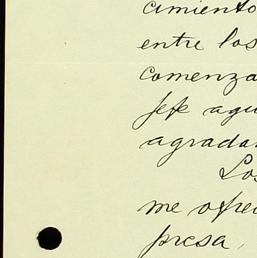 cimiento
entre los
comenza
Jefe agu
agrada
Los
me ofre
presa,